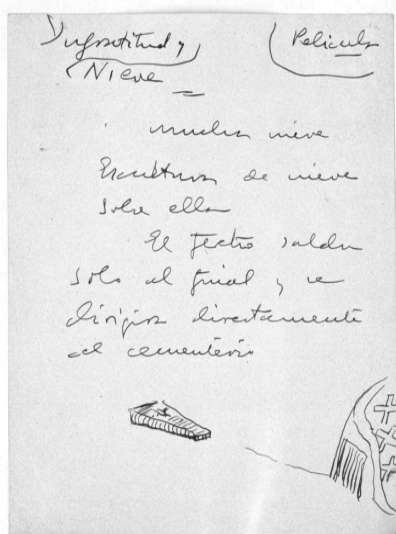 Ingratitud y
Nieve
Pelicula
mucha nieve
Esculturas de nieve
sobre ella
El fectro saldra
solo al final y se
dirigira directamente
al cementerio